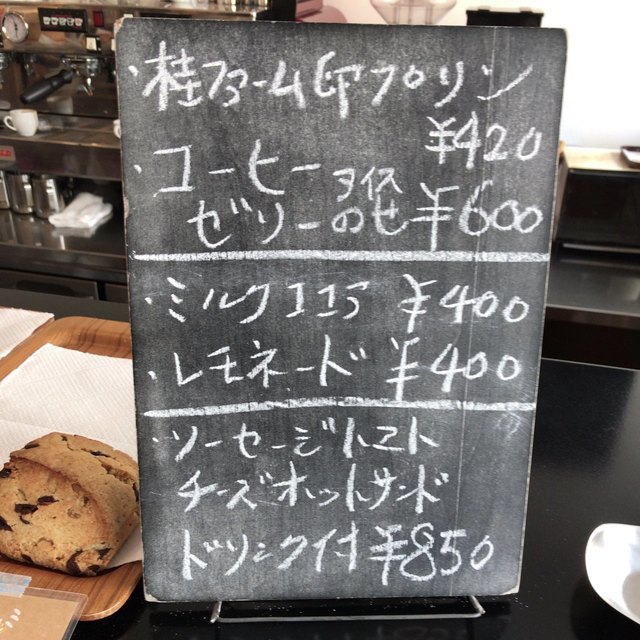 ・桂ファーム印プリン
¥420
・コーヒー アイス
ゼリーのせ ¥600
・ミルクココア ¥400
・レモネード ¥400
・ソーセージトマト
チーズホットサンド
ドリンク付 ¥850